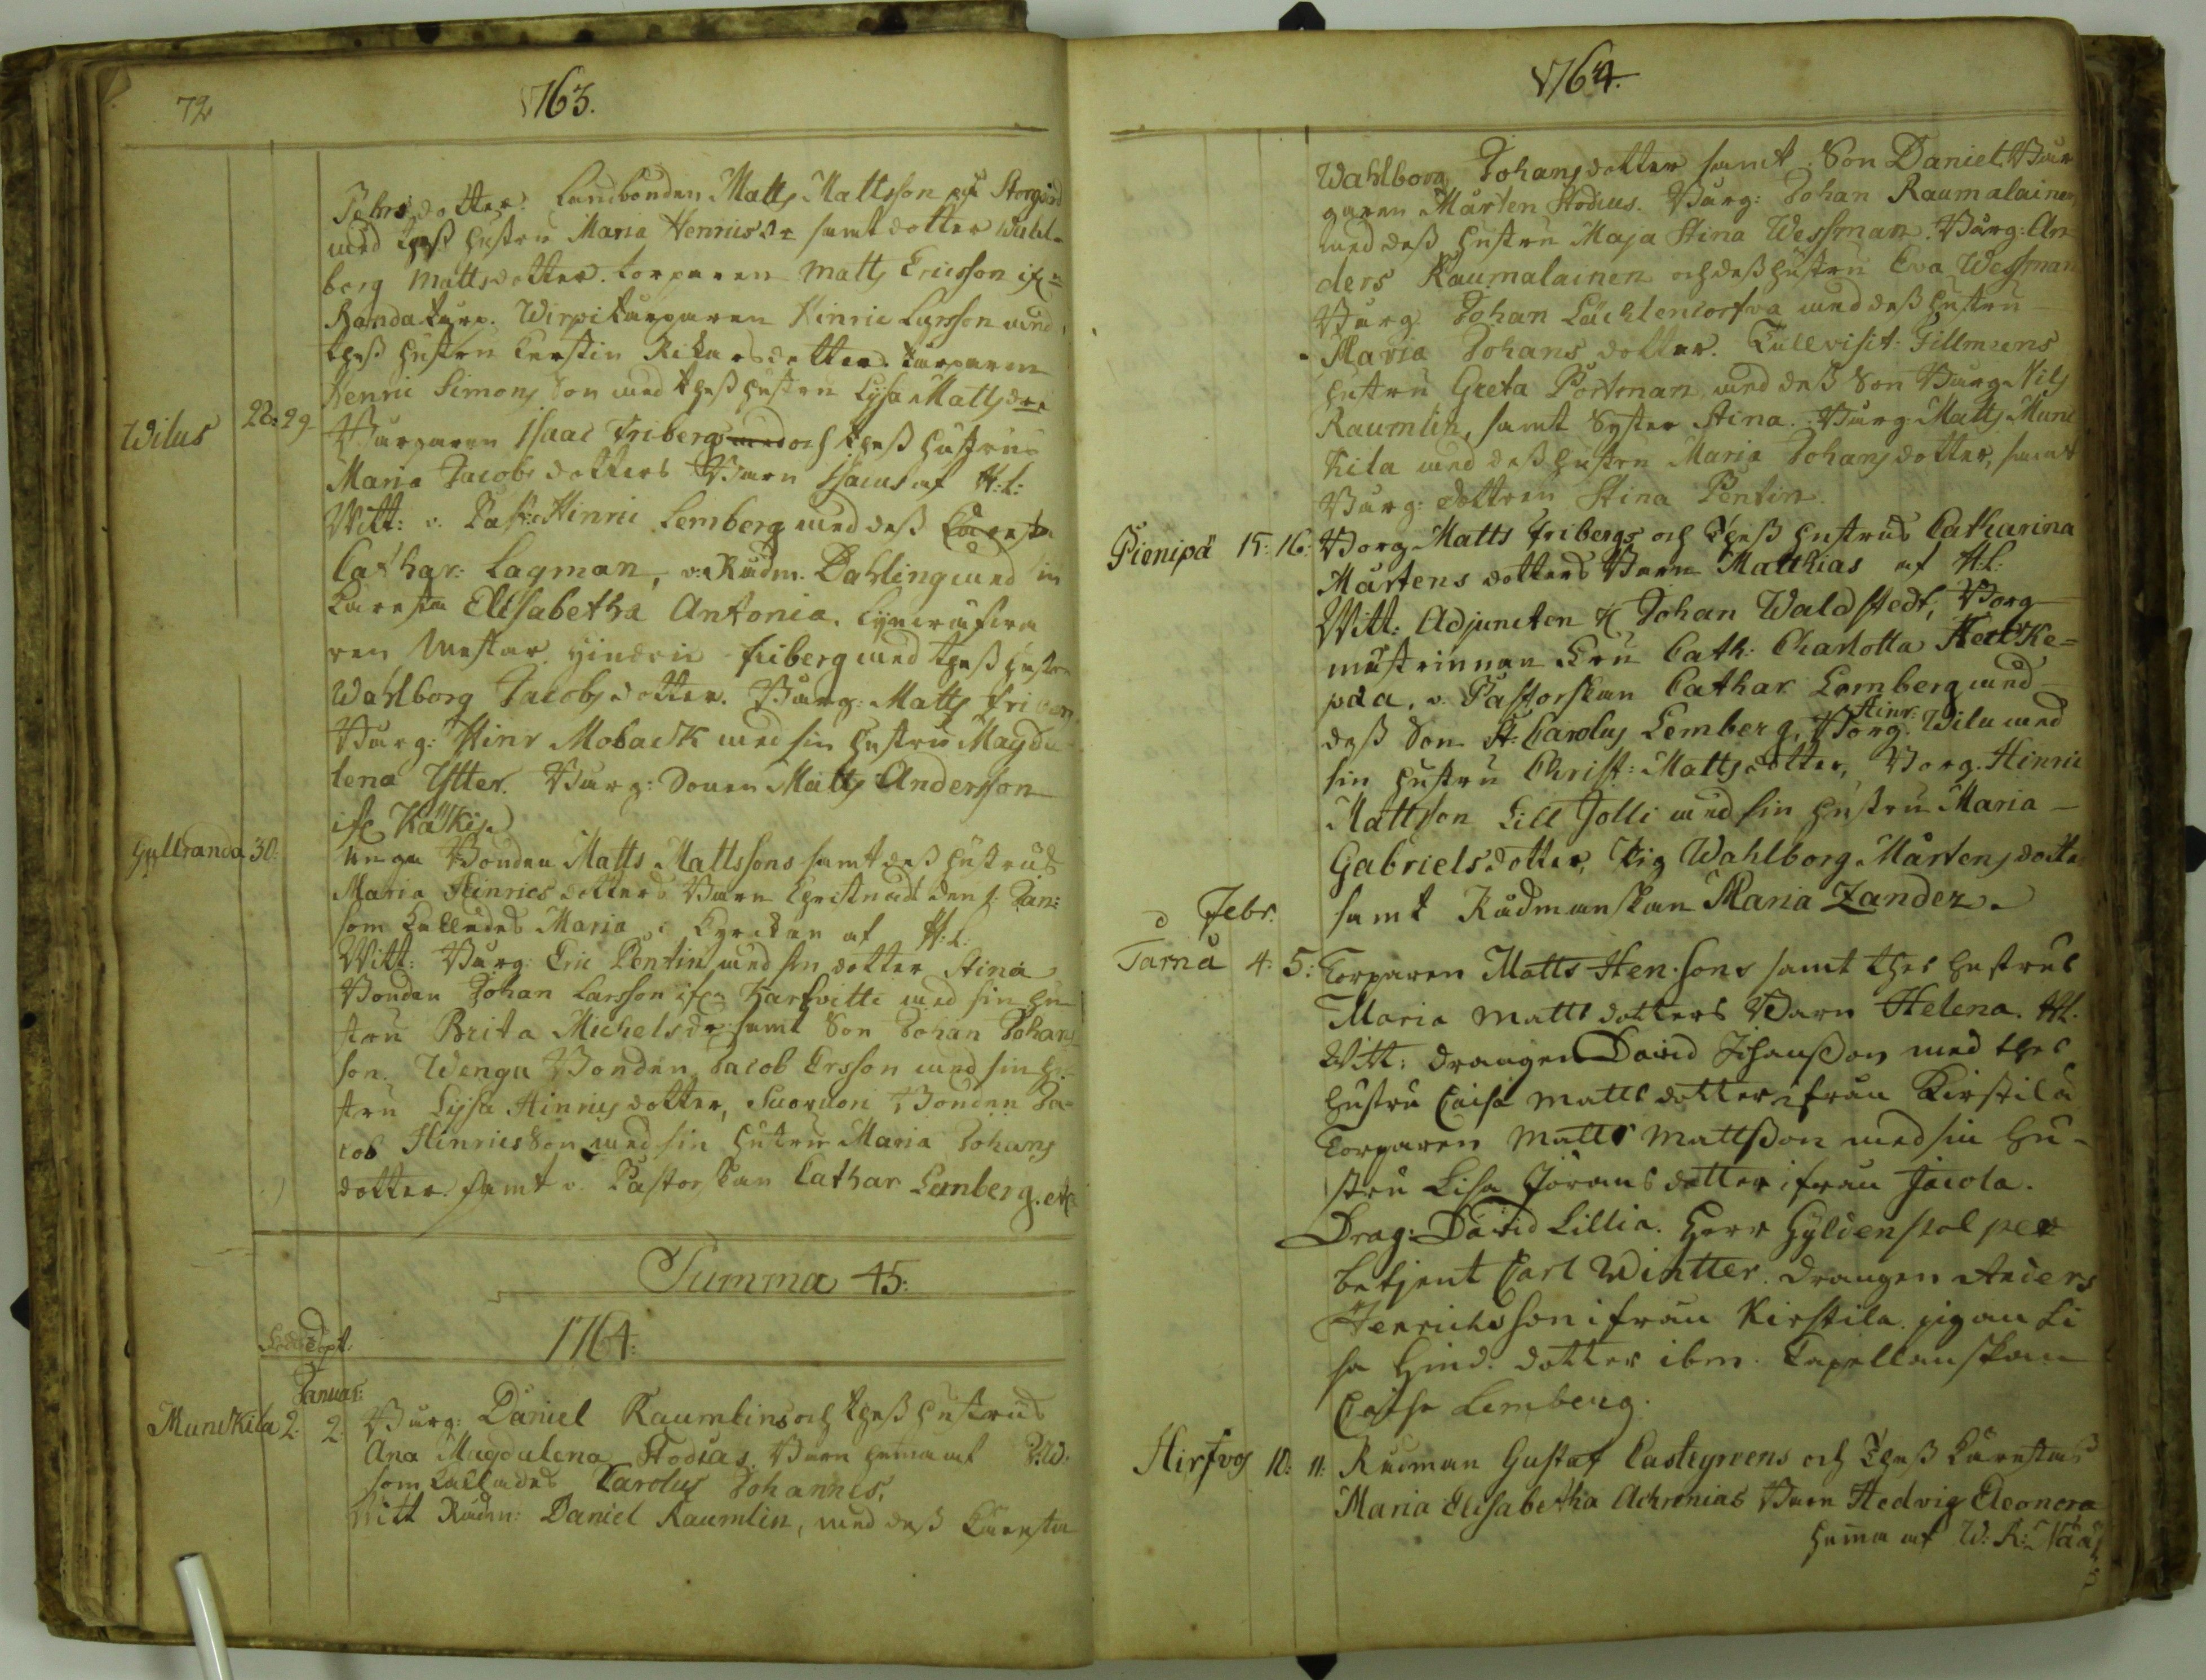 72
1763.
Pehrs dotter. Landbonden Matts Mattsson på Storgård
med thess hustru Maria Henricsdr samt dotter Wahl-
borg Mattsdotter. torparen Matts Ericsson ifr:
Randakarp. Wirpi torparen Hinric Larsson med
thess hustru Kerstin Rikarsdotter. torparen
Henric Simons Son med thess hustru Lisa Matts dr
Wilus 28: 29. Borgaren Isaac Fribergs och thess hustrus
Maria Jacobs dotters Barn Isacus af H: L:
Witt: v. Past: Hinric Lemberg med dess
Cathar: Lagman, v: Rådm. Dahling med sin
Käresta Elisabetha Antonia.
ren Mestar Hindric friberg med thess hustru
Wahlborg Jacobs dotter. Borg: Matts Friberg
Borg: Hinr Moback med sin hustru Magda
lena Ytter. Borg: Sonen Matts Andersson
ifr Käskis
Gullranda 30: unga Bonden Matts Mattssons samt dess hustrus
Maria Hinrics dotters Barn Christnadt den 1. Jan:
som kallades Maria i Kyrckan af H: L:
Witt: Borg: Eric Pentin med sin dotter Stina
Bonden Johan Larsson ifrn Karfvitti med sin hu-
stru Brita Michelsdr samt Son Johan Johans
son. Wenga Bonden Jacob Ersson med sin hu-
stru Lisa Hinrics dotter, Suorvori Bonden Ja-
cob Hinrics Son med sin hustru Maria Johans
dotter. samt v. Pastorskan Cathar Lemberg. etc
Summa 45:
Född Döpt. 1764:
Januar:
Munckila 2. 2. Borg: Daniel Raumlins och thess hustrus
Ana Magdalena Stodias. Barn hema af J: W:
som kallades Carolus Johannes,
Witt Rådm: Daniel Raumlin, med dess Käresta
1764.
Wahlborg Johans dotter samt Son Daniel Bor
garen Mårten Stodius. Borg: Johan Raumalainen
med dess hustru Maja Stina Wessman. Borg: An
ders Raumalainen och dess hustru Eva Wessman
Borg Johan med dess hustru
Maria Johans dotter. Tullvisit: Tillmans
hustru Greta Portman med dess Son Borg Nils
Raumlin, samt Syster Stina. Borg Matts Munc
kila med dess hustru Maria Johans dotter, samt
Borg: dottren Stina Pentin.
Pienipä 15: 16: Borg Matts Fribergs och Thess hustrus Catharina
Mårtens dotters Barn Matthias af H. L:
Witt: Adjuncten H Johan Waldstedt, Borg
mästrinnan Fru Cath: Charlotta Kecke=
pda, v. Pastorskan Cathar Lemberg med
dess Son St. Carolus Lemberg, Borg. Hinr: Wilu med
sin hustru Christ: Matts dotter, Borg. Hinric
Mattsson Lill Jolli med sin hustru Maria
Gabriels dotter, Pig Wahlborg Mårtens dotter
samt Rådmanskan Maria Zander.
Febr.
Tarna 4: 5: Torparen Matts Hen. sons samt thes hustrus
Maria matts dotters Barn Helena. H L.
Witt: drangen David Johansson med thes
hustru Caisa matts dotter ifrån Kirstila
Torparen Matts Mattsson med sin hu-
stru Lisa Jörans dotter ifrån Jacola.
Drag: David Lillia. Herr Gyldenstolpes
betjent Carl Wintter. Drangen Anders
Henrichsson ifrån Kirstila. pigan Li
sa Hind. dotter ibm. Capellanskan
Caisa Lemberg.
Hirfvo 10: 11: Rådman Gustaf Castegrens och Thess Kärestas
Maria Elisabetha Achrenias Barn Hedvig Eleonora
hema af W: R: Nääs